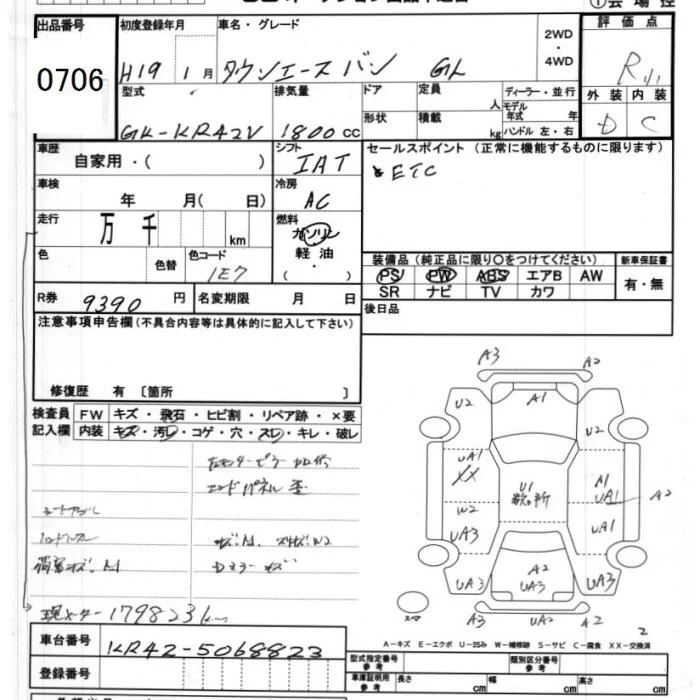 出品番号 初度登録年月 車名・グレード 2WD・4WD 評価点
0706 H19 1月 タウンエースバン GL R
外装 内装
D C
型式 排気量 ドア 定員 人 ディーラー・並行
GK-KR42V 1800cc 形状 積載 kg モデル年式 年
ハンドル 左・右
車歴 自家用・( ) シフト IAT セールスポイント(正常に機能するものに限ります)
ETC
車検 年 月( 日) 冷房 AC
走行 万 千 km 燃料 ガソリン
軽油
( ・ )
色 色替 色コード 1E7
装備品(純正品に限り○をつけてください) 新車保証書
PS PW ABS エアB AW 有・無
SR ナビ TV カワ
R券 9390円 名変期限 月 日 後日品
注意事項申告欄(不具合内容等は具体的に記入して下さい)
修復歴 有 〔箇所 〕
検査員記入欄 FW キズ・飛石・ヒビ割・リペア跡・×要
内装 キズ・汚レ・コゲ・穴・スレ・キレ・破レ
エンドパネル 歪
現メーター 179823km
A3 A2
A1
U2 U2
UA1
XX
U1
A1
UA1 A2
W2
UA3 UA1
A2
UA3 UA3 UA3
スペア
A3 UA2 A2
2
A-キズ E-エクボ U-凹み W-補修跡 S-サビ C-腐食 XX-交換済
車台番号 KR42-5068823
型式指定番号 参考 類別区分番号 参考
登録番号 車庫証明用 参考 長さ cm 幅 cm 高さ cm